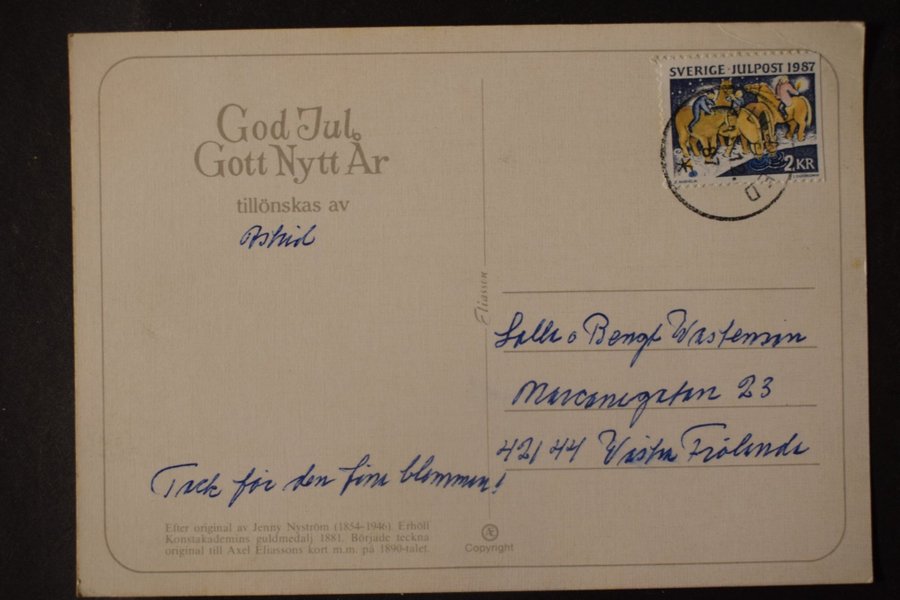 God Jul
Gott Nytt År
tillönskas av
Astrid
Tack för den fina blomman!
Efter original av Jenny Nyström (1854-1946). Erhöll
Konstakademins guldmedalj 1881. Började teckna
original till Axel Eliassons kort m.m. på 1890-talet.
Eliasson
Æ
Copyright
SVERIGE · JULPOST 1987
2 KR
o Bengt
Marconigatan 23
421 44 Västra Frölunda